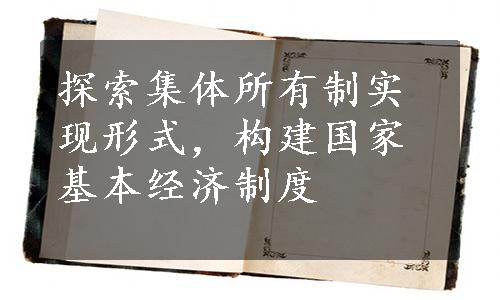 探索集体所有制实
现形式，构建国家
基本经济制度